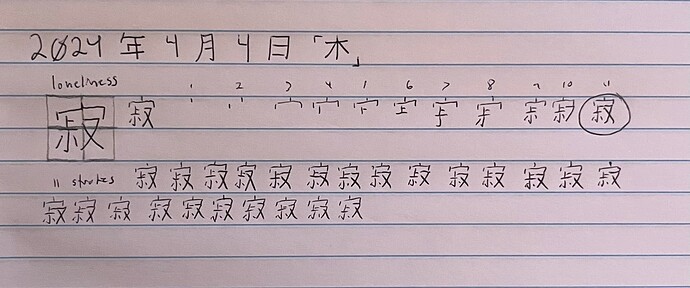 2024 年 4 月 4 日 「木」
loneliness 1 2 3 4 5 6 7 8 9 10 11
寂 寂 寂
11 strokes 寂 寂 寂 寂 寂 寂 寂 寂 寂 寂 寂 寂 寂 寂
寂 寂 寂 寂 寂 寂 寂 寂 寂 寂